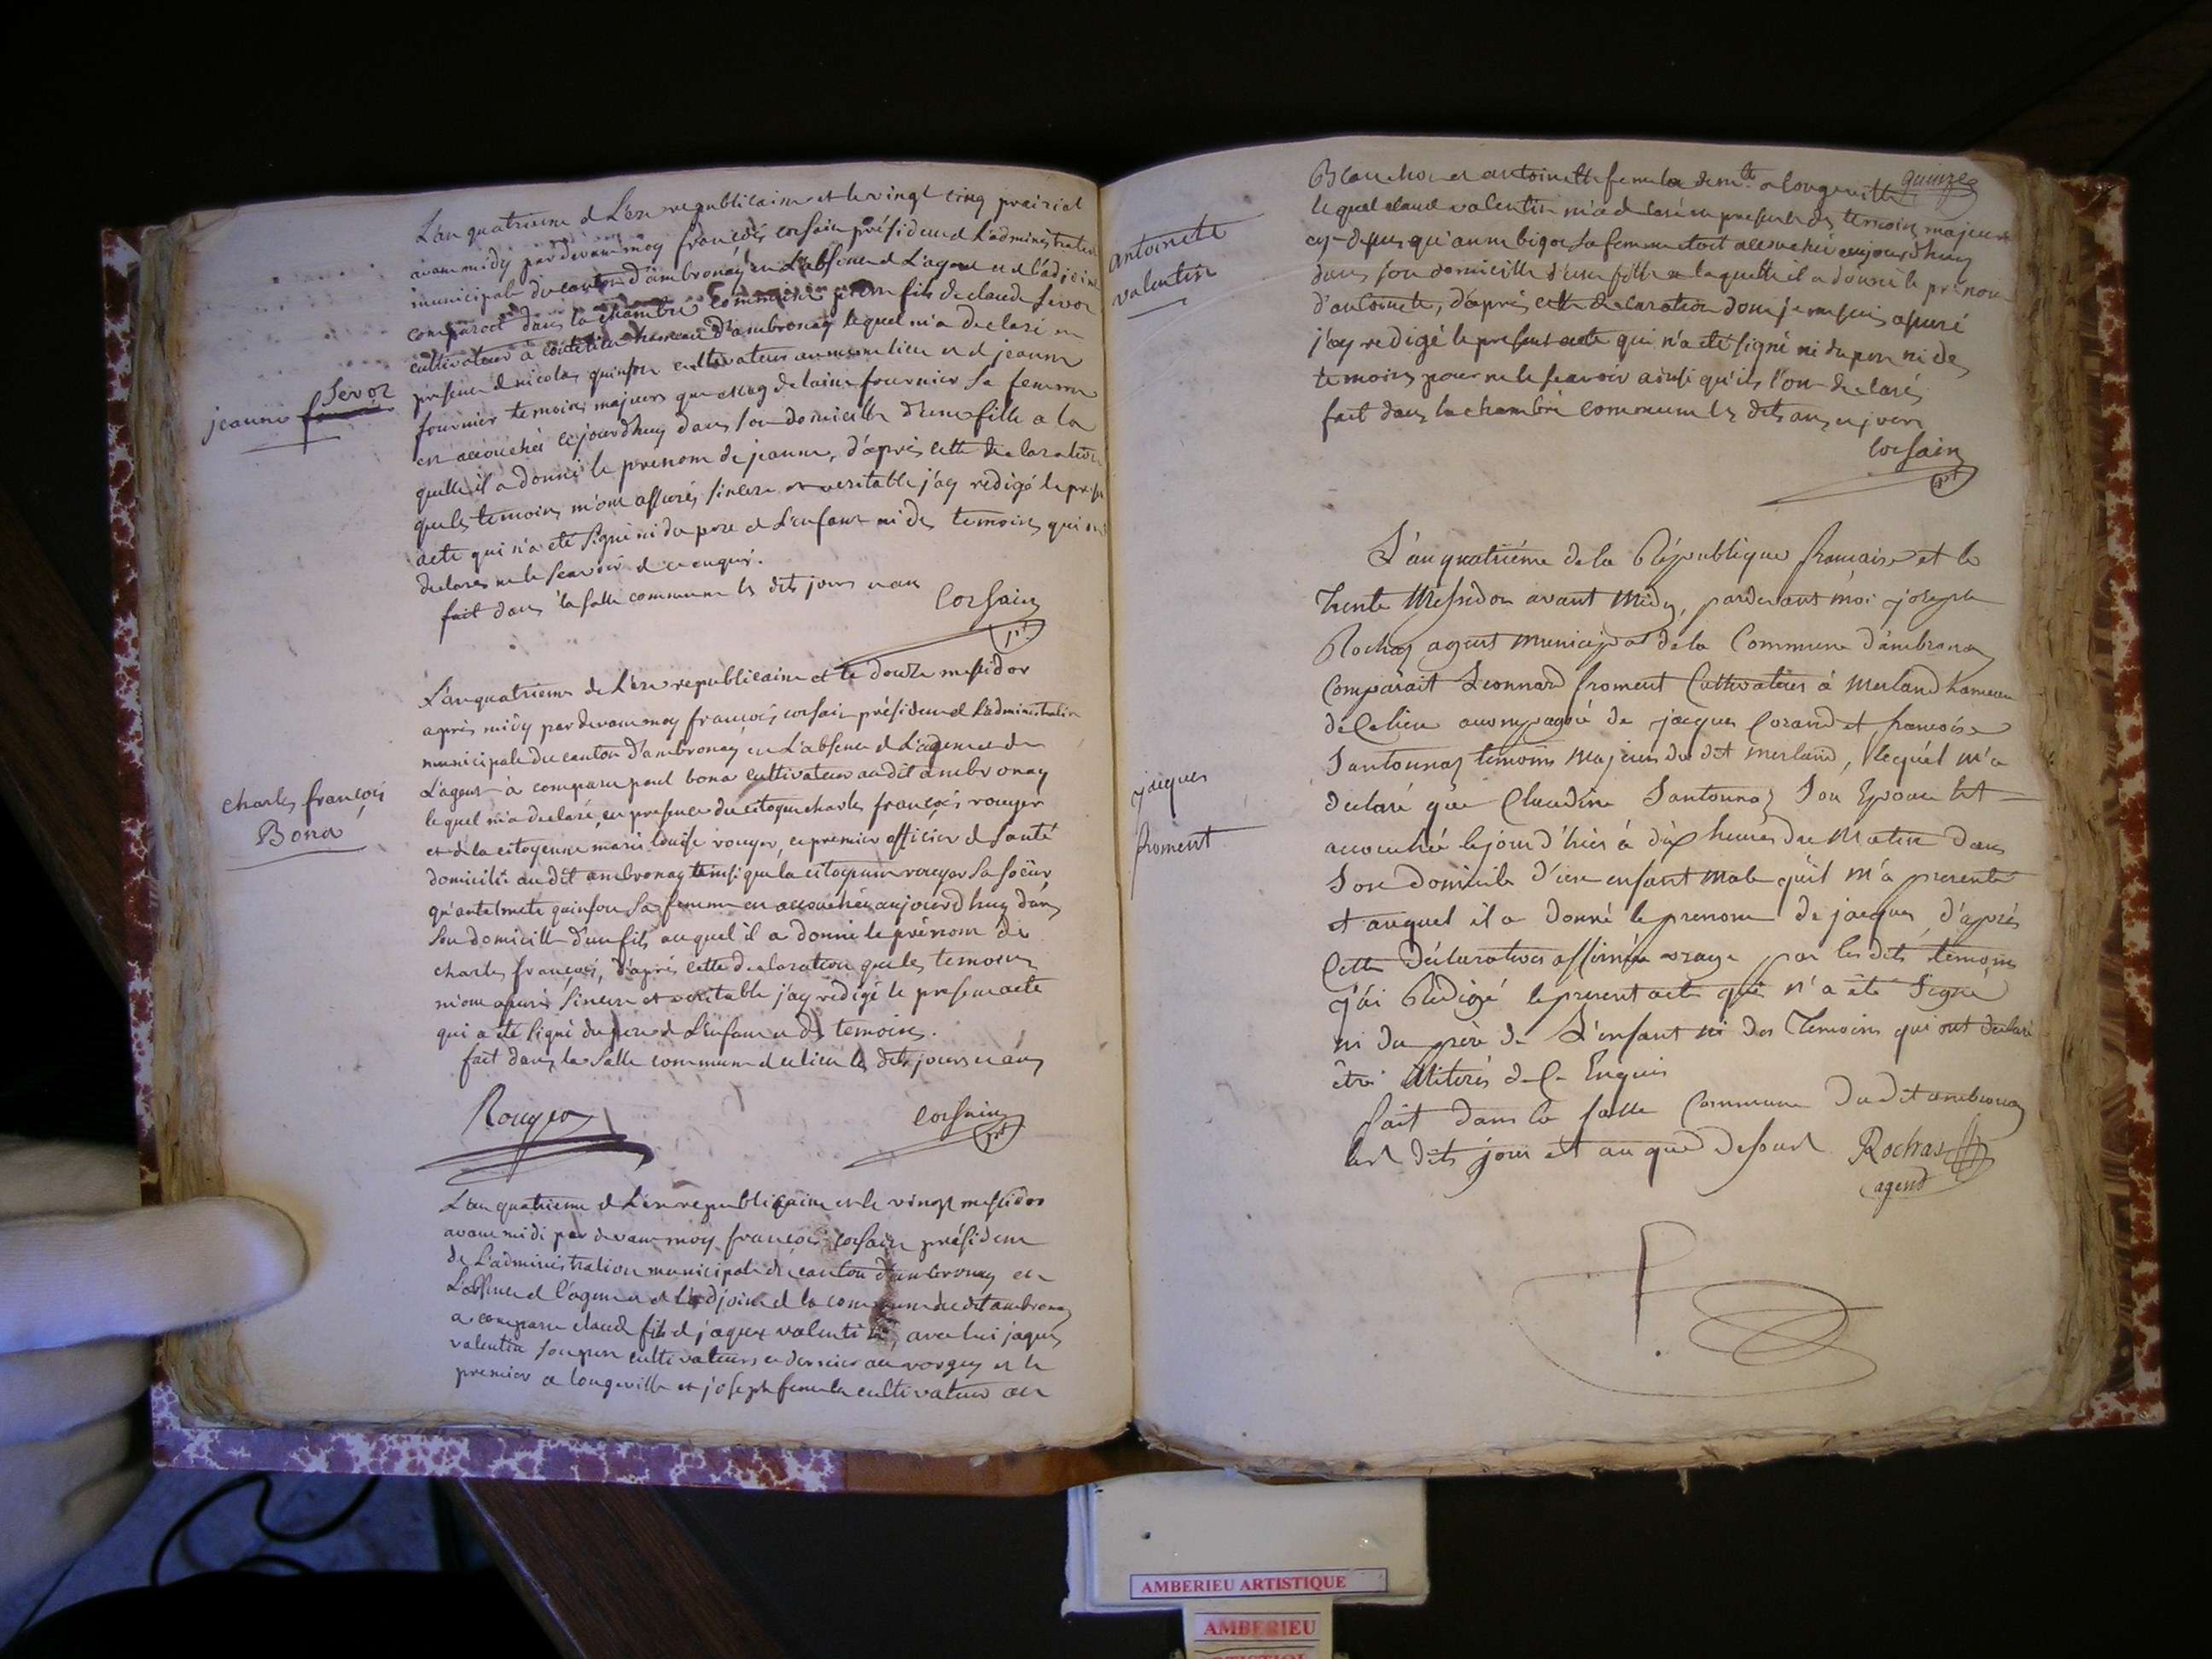 L'an quatrieme d L'ere republicaine et le vingt cinq prairial
avant midy pardevant moy françois corsain président d L'administration
municipale du canton d'ambronay en L'absence d L'agent et d l'adjoint
comparoit dans la chambre commune pierre fils de claude sevoz
cultivateur à hameau d'ambronay lequel m'a declaré en
presence d nicolas quinson cultivateur au meme lieu et d jeanne
fournier temoins majeurs que fournier sa femme
jeanne sevoz
est accouchée cejourdhuy dans son domicille d'une fille a la
quelle il a donné le prenom de jeanne, d'après cette declaration
que les temoins m'ont assurés sincere et veritable j'ay redigé le present
acte qui n'a eté signé ni du pere d L'enfant ni des temoins qui ont
declarés ne le scavoir d ce enquis.
fait dans la salle commune les dits jours et an
Corsain
pt
L'an quatrieme de L'ere republicaine et le douze messidor
après midy pardevant moy françois corsain président d L'administration
municipale du canton d'ambronay en L'absence d L'agent et de
L'agent à comparu paul bona cultivateur audit ambronay
charles françois
Bona
lequel m'a declaré, en presence du citoyen charles françois rouyer
et de la citoyenne marie louise rouyer, ce premier officier d santé
domicilié audit ambronay ainsi que la citoyenne rouyer sa soeur
qu'antelmette quinson sa femme est accouchée aujourdhuy dans
son domicille d'un fils auquel il a donné le prénom de
charles françois, d'après cette declaration que les temoins
m'ont assuré sincere et veritable j'ay redigé le present acte
qui a eté signé du pere d L'enfant et ds temoins.
fait dans la salle commune d ce lieu les dits jours et an
Rouyer
corsain
pt
L'an quatrieme d L'ere republicaine et le vingt messidor
avant midi par devant moy françois corsain président
de L'administration municipale du canton d'ambronay en
L'absence d l'agent et d L'adjoint d la commune du dit ambronay
a comparu claude fils d jaques valentin, avec lui jaques
valentin son pere cultivateurs ce dernier au vorgey et le
premier a longeville et joseph cultivateur au
quinze
et antoinette a longeville
antoinette
valentin
lequel claude valentin m'a declaré en presence des temoins majeurs
cy-dessus qu'anne bigot sa femme etoit accouchée aujourdhuy
dans son domicille d'une fille a laquelle il a donné le prenom
d'antoinette, d'après cette declaration dont je me suis assuré
j'ay redigé le present acte qui n'a eté signé ni du pere ni des
temoins pour ne le scavoir ainsi qu'ils l'ont declarés
fait dans la chambre commune les dits an et jour
Corsain
pt
L'an quatriéme de la République francaise et le
trente Messidor avant Midy, pardevant moi joseph
Rochas agent municipal de la Commune d'ambronay
Comparait Leonnard froment Cultivateur à Merland hameau
de Ce lieu accompagné de jacques Corand et francoise
Santonnaz temoins majeurs du dit merland, lequel m'a
jacques
froment
declaré que Claudine Santonnaz Son Epouse Est
accouchée le jour d'hier à dix heures du Matin dans
Son domicile d'un enfant male qu'il m'a presenté
et auquel il a donné le prenom de jacques, d'après
Cette déclaration affirmée vraye par les dits temoins
j'ai Rédigé le present acte qui n'a été Signé
ni du père de L'enfant ni des Temoins qui ont declaré
être illiterés de Ce Enquis
fait dans la salle Commune du dit ambronay
les dits jour et an que dessus Rochas
agent
AMBERIEU ARTISTIQUE
AMBERIEU